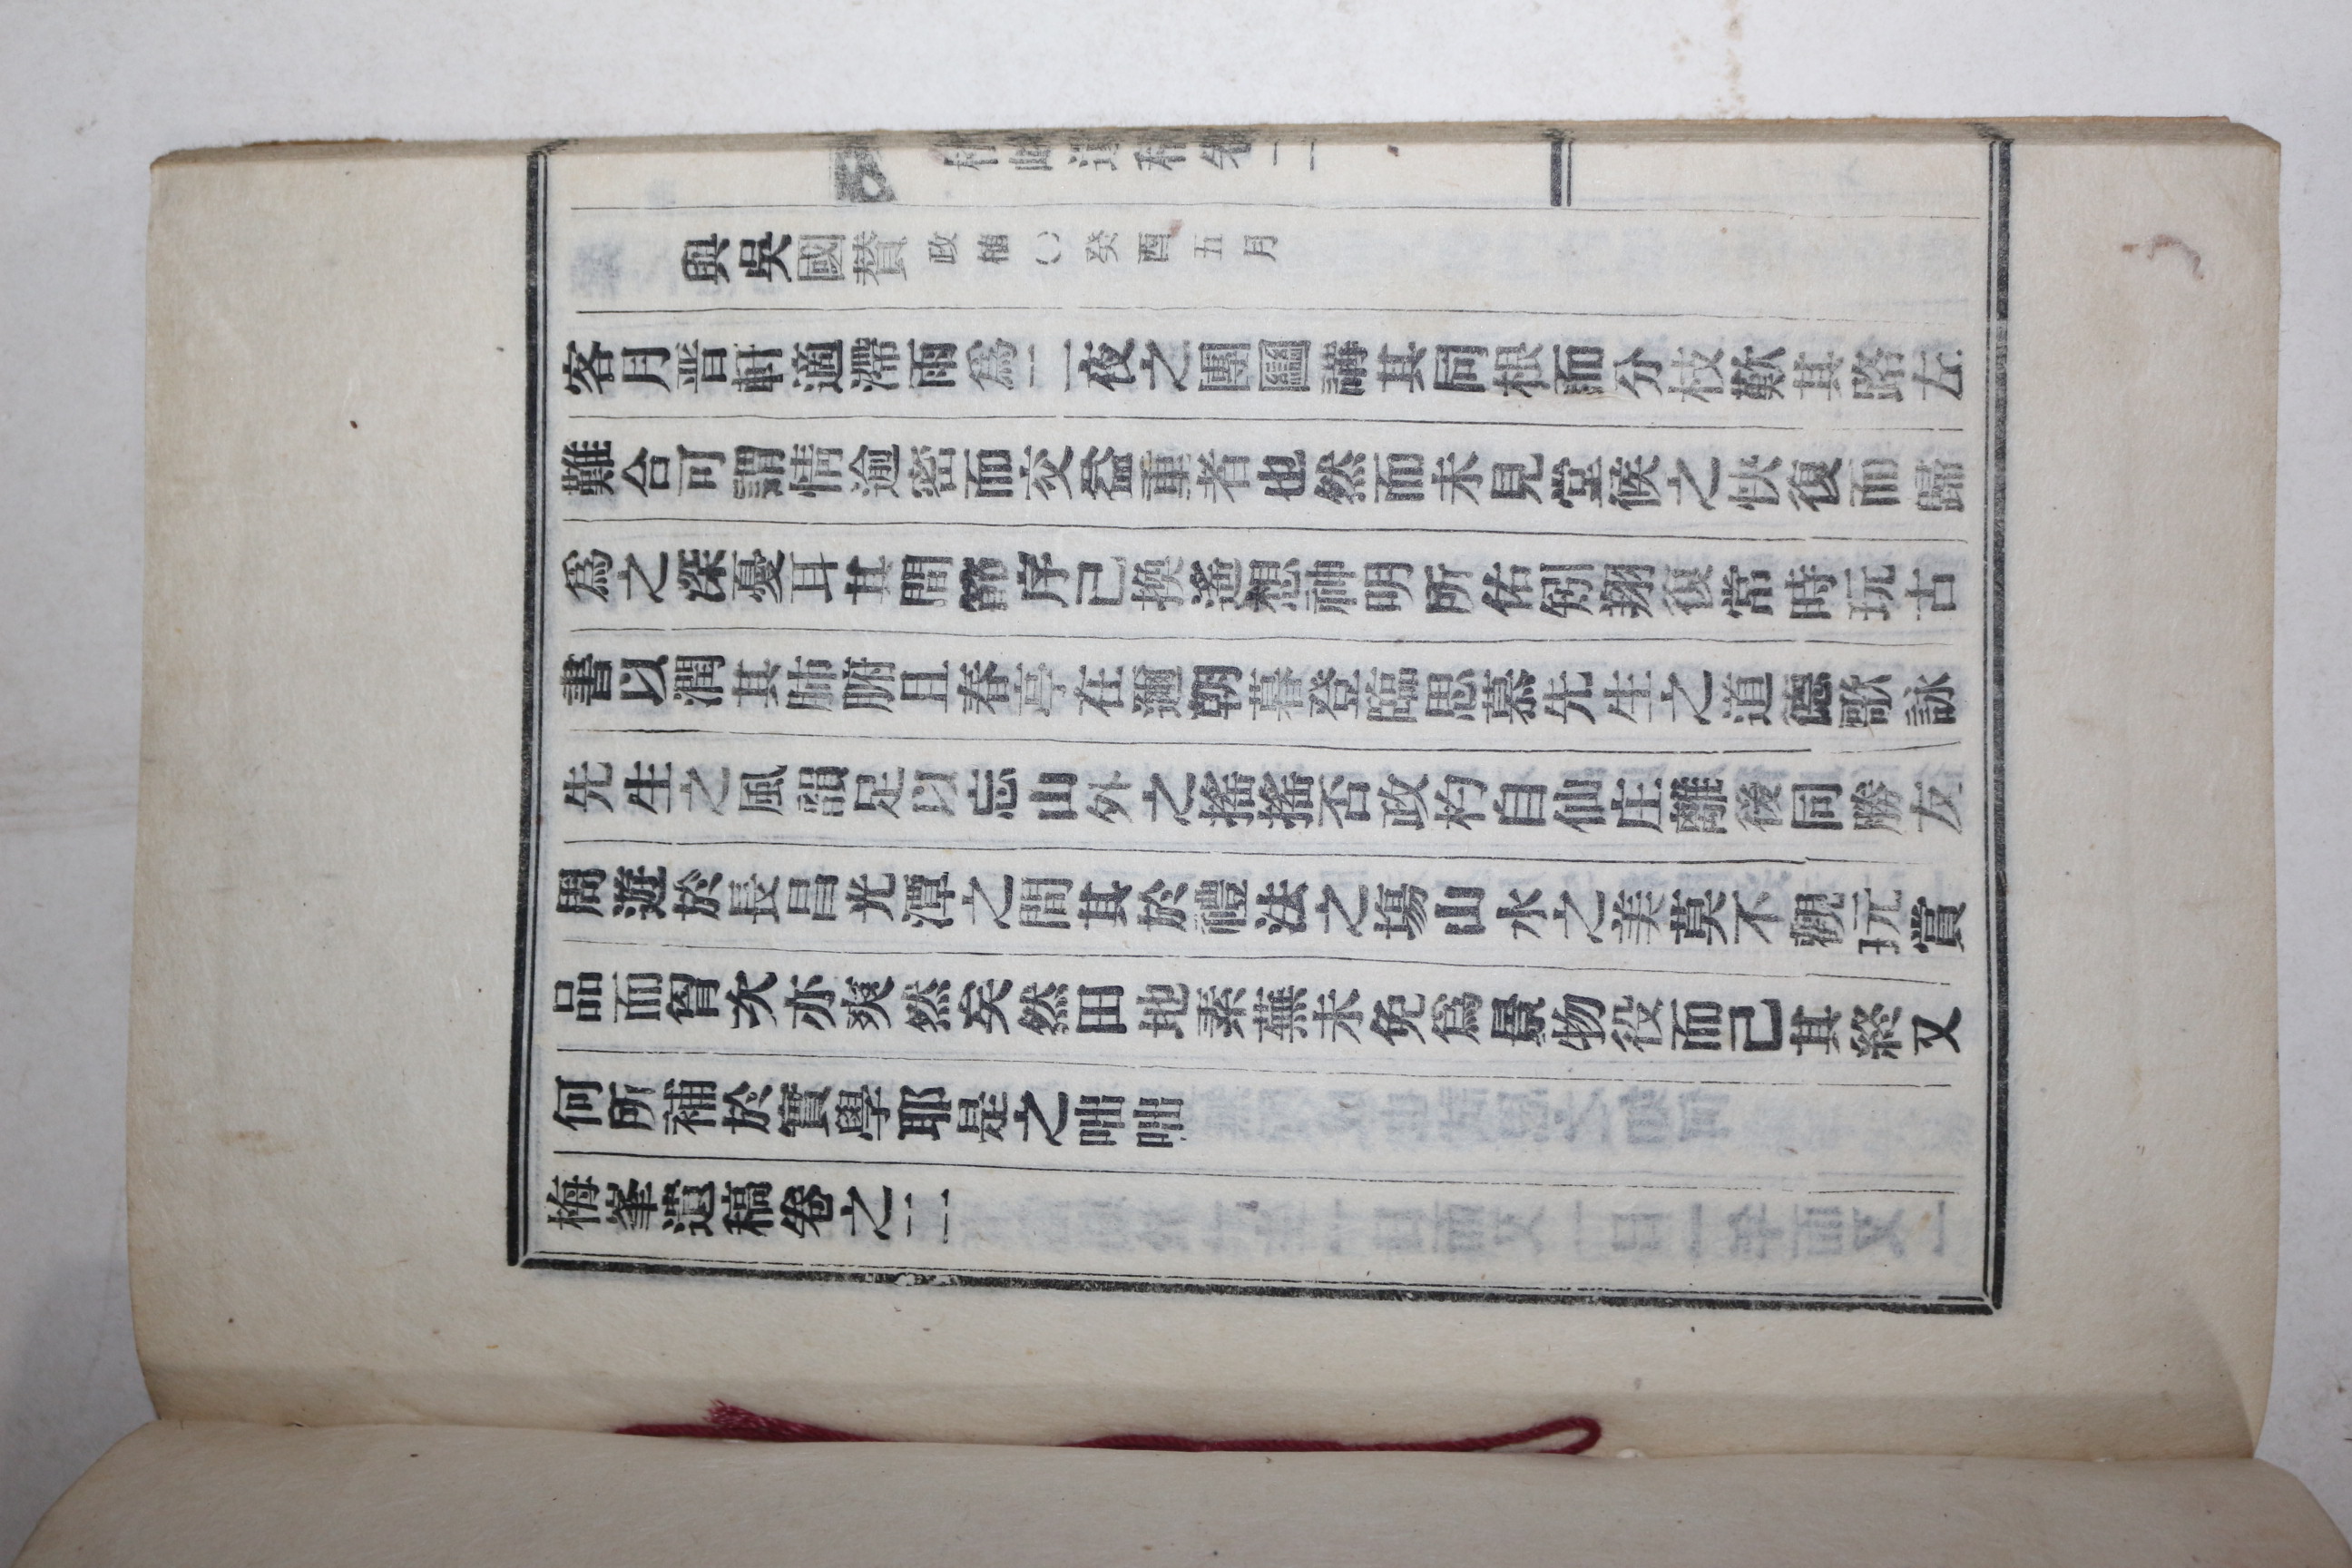 梅峰遺稿卷二
與吳國贊政植()癸酉五月
客月晋軒適滯雨爲二夜之團圞講其同根而分枝歎其路左
難合可謂情逾密而交益重者也然而未見堂候之快復而歸
爲之深憂耳其間節序己換遙想神明所佑矧翔復常時玩古
書以潤其肺腑且春亭在邇朝暮登臨思慕先生之道德歌詠
先生之風韻足以忘山外之搖搖否政杓自仙庄離後同勝友
周遊於長昌光潭之間其於禮法之塲山水之美莫不觀玩賞
品而胷次亦爽然矣然田地素蕪未免爲景物役而己其終又
何所補於實學耶是之咄咄
梅峯遺稿卷之二